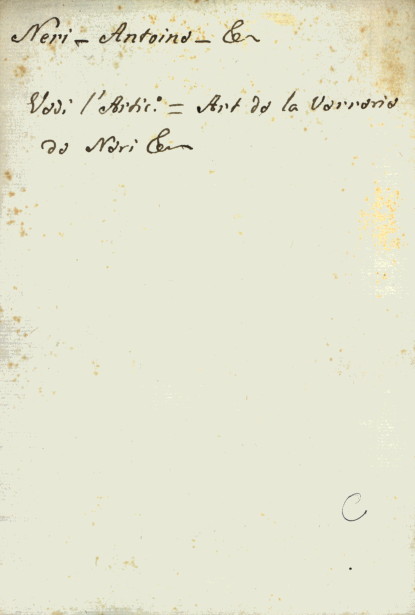 Neri - Antoine - &
Vedi l'Artic.º = Art de la Verrerie
de Neri &
C